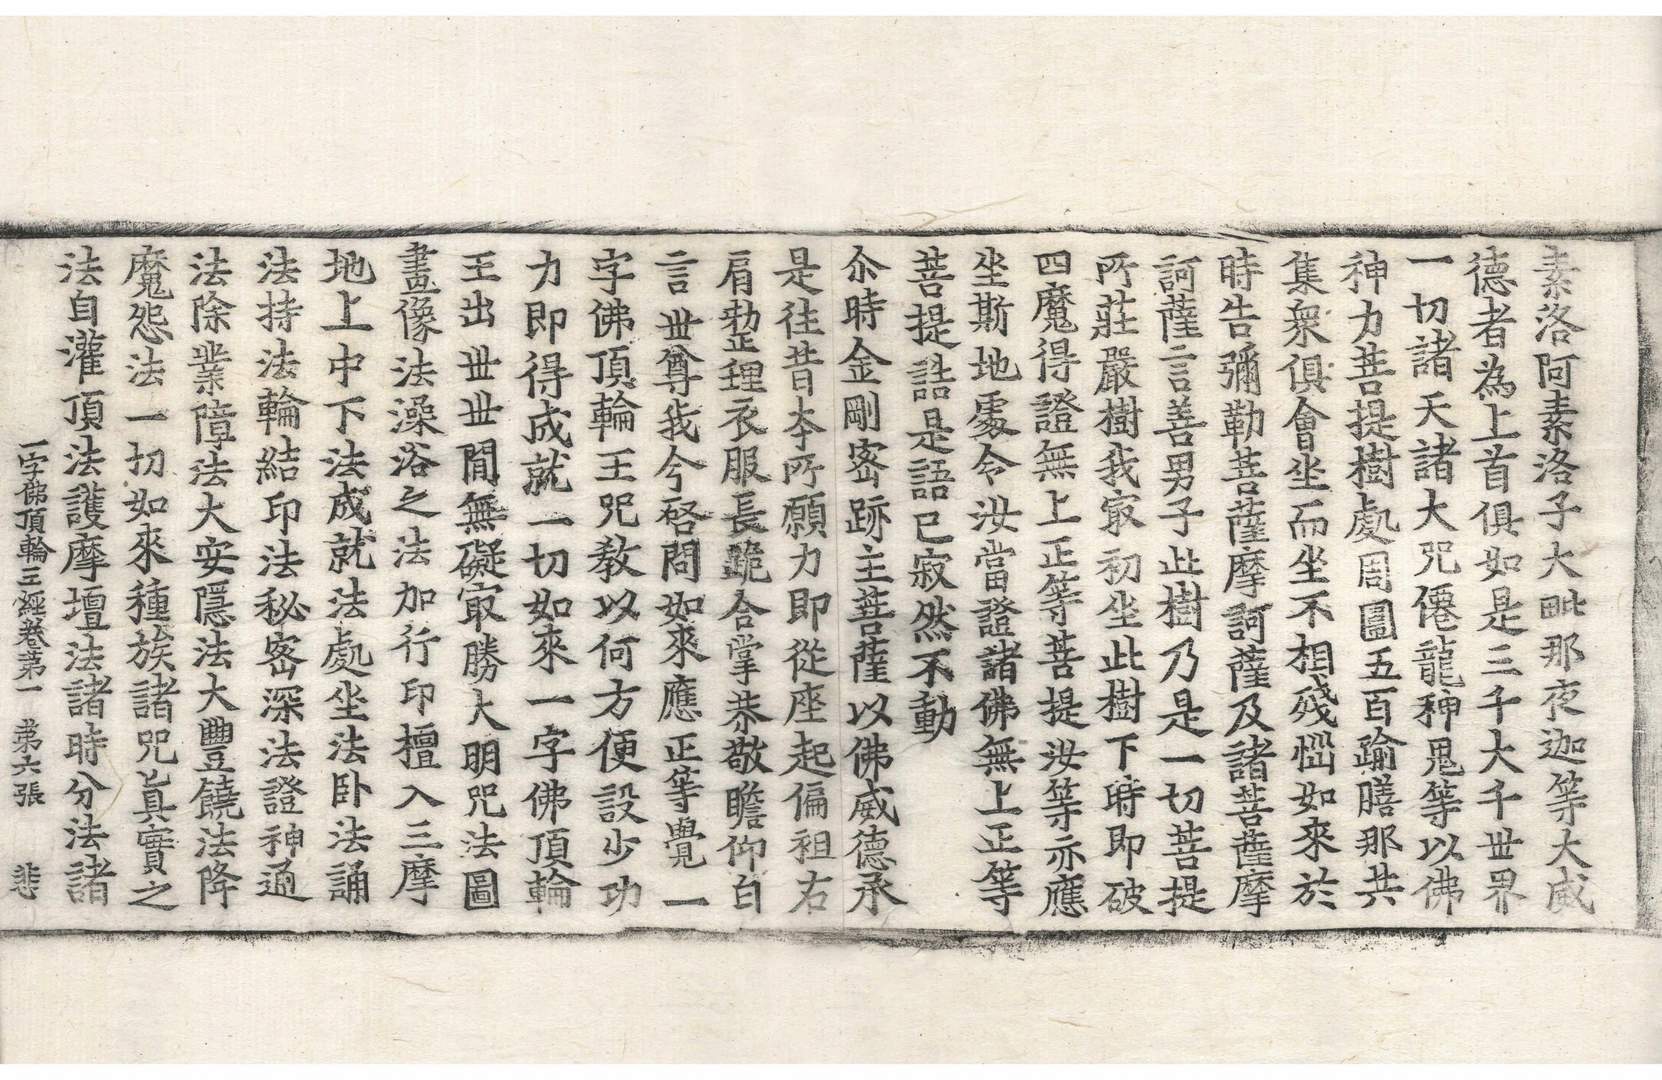 素洛阿素洛子大毗那夜迦等大威
德者為上首俱如是三千大千世界
一切諸天諸大咒僊龍神鬼等以佛
神力菩提樹處周圍五百踰膳那共
集衆俱會坐而坐不相殘惱如來於
時告彌勒菩薩摩訶薩及諸菩薩摩
訶薩言善男子此樹乃是一切菩提
所莊嚴樹我㝡初坐此樹下時即破
四魔得證無上正等菩提汝等亦應
坐斯地處令汝當證諸佛無上正等
菩提詰是語已寂然不動
尒時金剛密跡主菩薩以佛威德承
是往昔本所願力即從座起偏袒右
肩整理衣服長跪合掌恭敬瞻仰白
言世尊我今啓問如來應正等覺一
字佛頂輪王咒教以何方便設少功
力即得成就一切如來一字佛頂輪
王出世世間無礙㝡勝大明咒法圖
畫像法澡浴之法加行印擅入三摩
地上中下法成就法處坐法卧法誦
法持法輪結印法秘密深法證神通
法除業障法大安隱法大豐饒法降
魔怨法一切如來種族諸咒真實之
法自灌頂法護摩壇法諸時分法諸
一字佛頂輪王經卷第一 第六張 悲